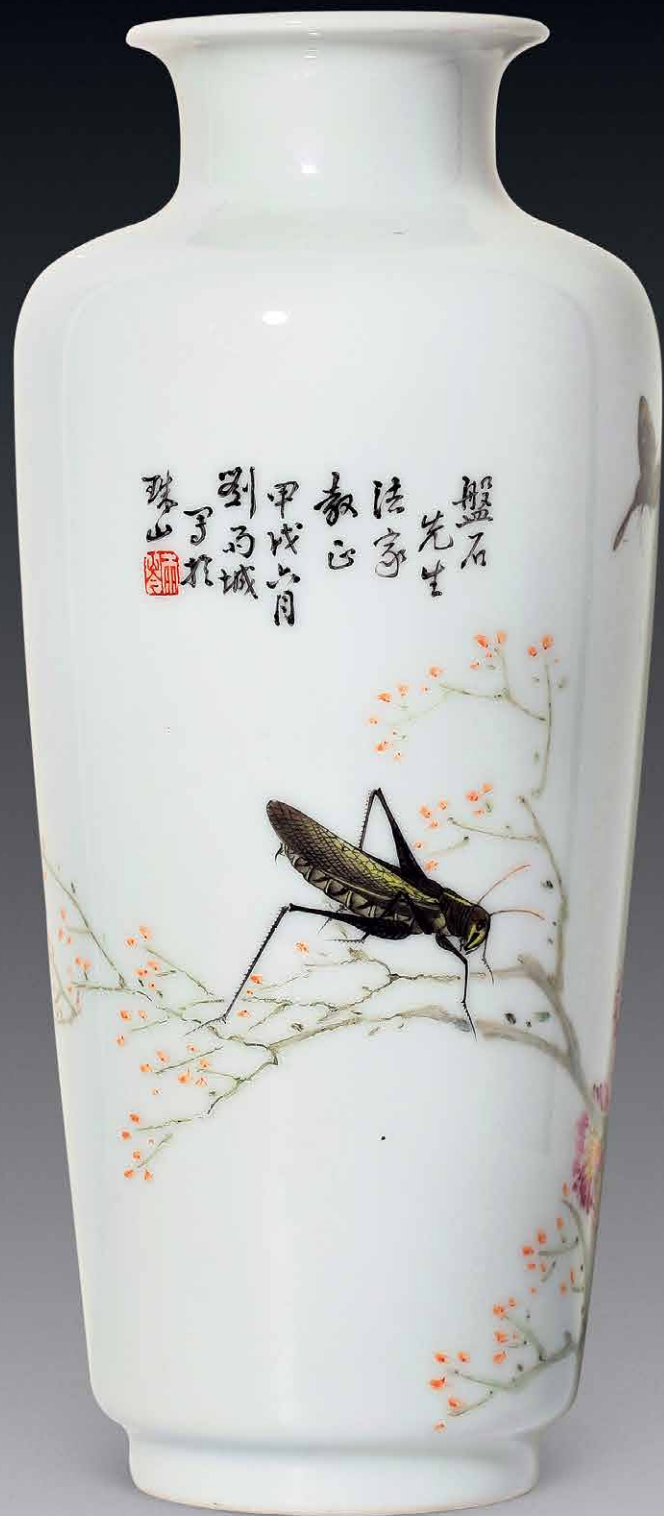 盤石
先生
法家
教正
甲戌六月
劉雨城
写於
珠山
雨岑